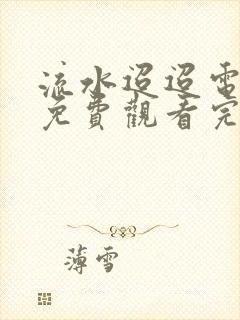 流水迢迢電
免費觀看完
薄雪